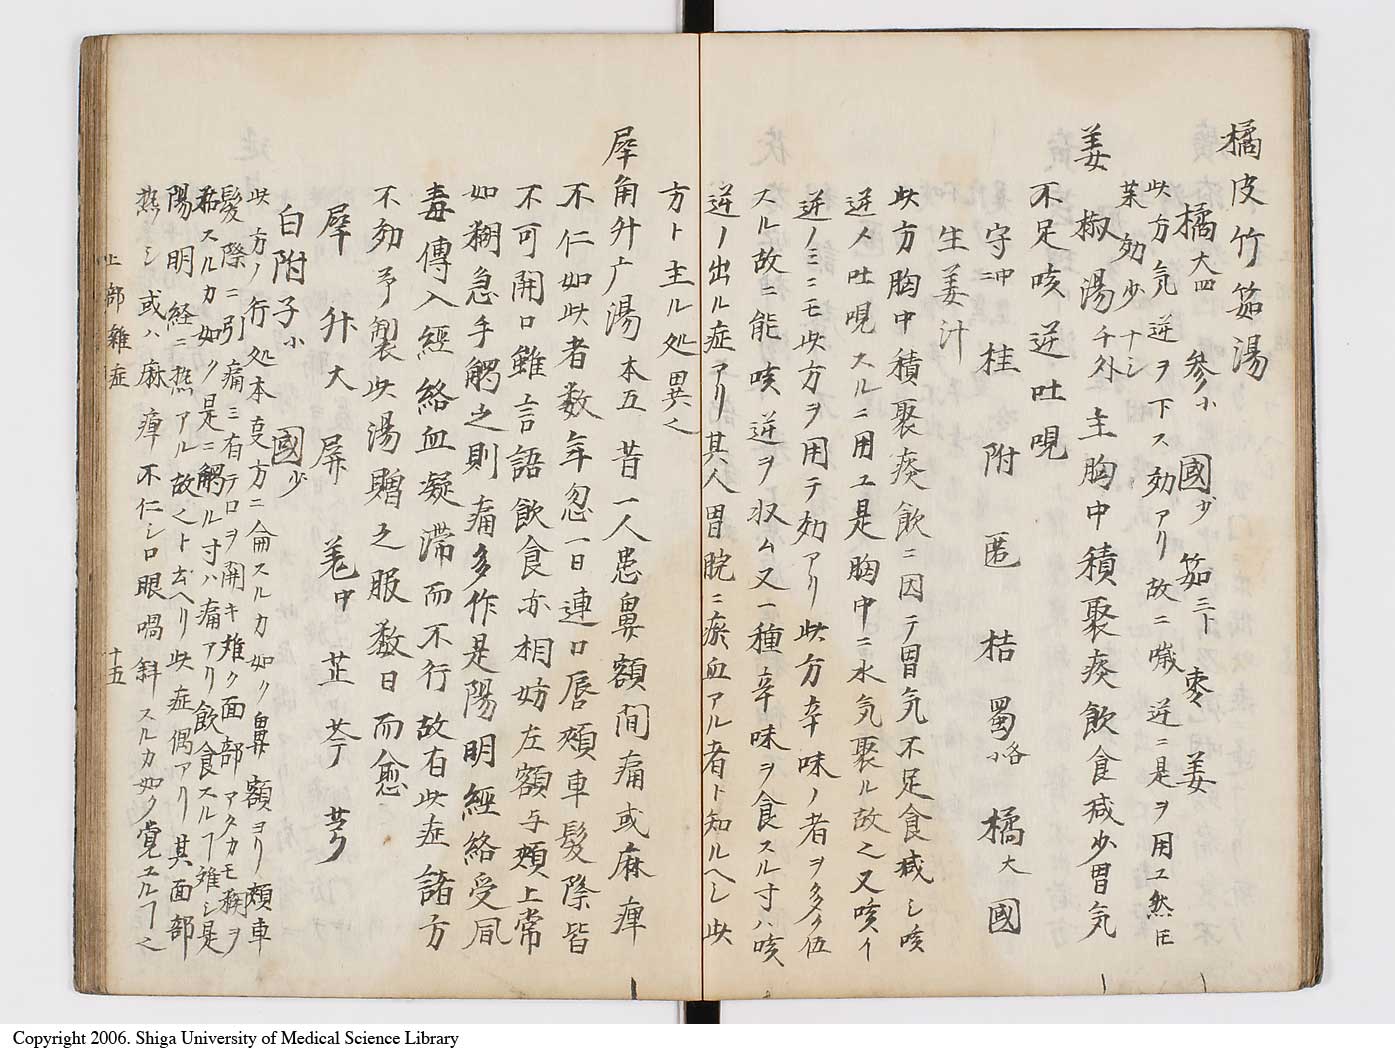 橘皮竹筎湯
橘大四 参小 國少 筎三ト 棗 姜
此方気逆ヲ下ス効アリ故ニ噦逆ニ是ヲ用ユ然𪜈
葉効少ナシ
姜椒湯千外主胸中積聚痰飲食减少胃気
不足咳逆吐哯
守中 桂 附 匿 桔 蜀小各 橘大 國
生姜汁
此方胸中積聚痰飲ニ因テ胃気不足食减シ咳
逆人吐哯スルニ用ユ是胸中ニ水気聚ル故之又咳イ
逆ノミニモ此方ヲ用テ効アリ此方辛味ノ者ヲ多ク伍
スル故ニ能咳逆ヲ収ム又一種辛味ヲ食スル寸ハ咳
逆ノ出ル症アリ其人胃脘ニ瘀血アル者ト知ルヘシ此
方ト主ル処異之
犀角升广湯 本五 昔一人患鼻額間痛或麻痺
不仁如此者数年忽一日連口唇頬車髪際皆
不可開口雖言語飲食亦相妨左額与頬上常
如糊急手觸之則痛多作是陽明經絡受風
毒傳入經絡血凝滞而不行故有此症諸方
不効予製此湯贈之服数日而愈
犀 升大 屏 羗中 芷 芩 芎
白附子小 國少
此方ノ行処本亰方ニ侖スルカ如ク鼻額ヨリ頬車
髪際ニ引痛ミ有テ口ヲ開キ難ク面部アタカモ糊ヲ
粘スルカ如ク是ニ觸ル寸ハ痛アリ飲食スルヿ難シ是
陽明経ニ熱アル故之ト云ヘリ此症偶アリ其面部
熱シ或ハ麻痺不仁シ口眼喎斜スルカ如ク覚ユルヿ之
上部雜症 十五